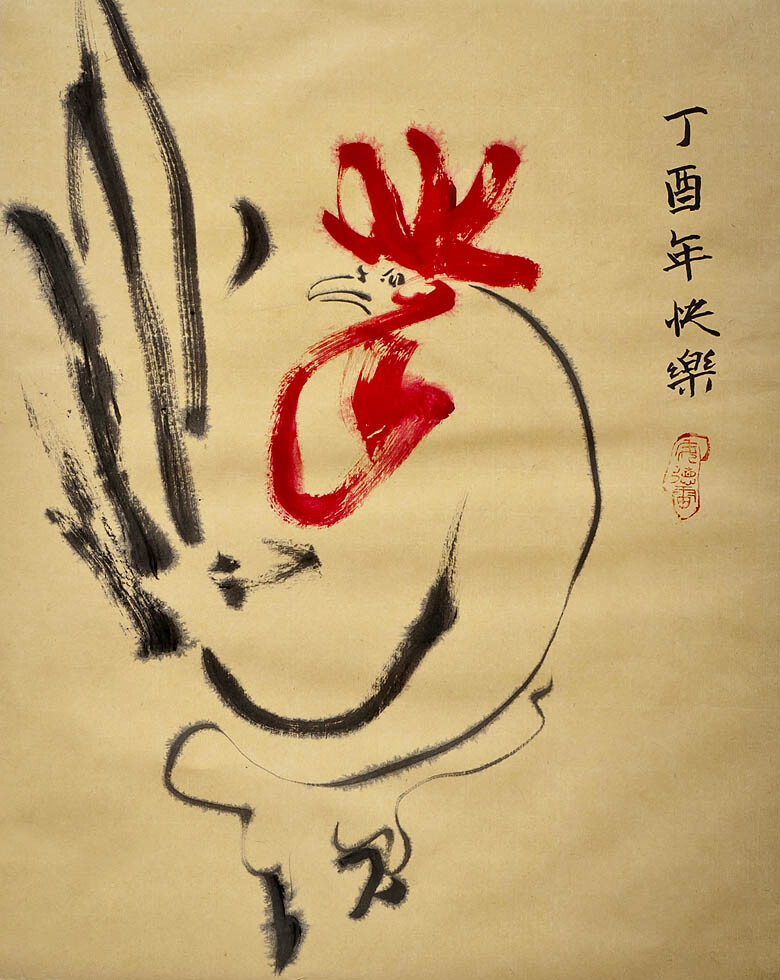 丁酉年快樂